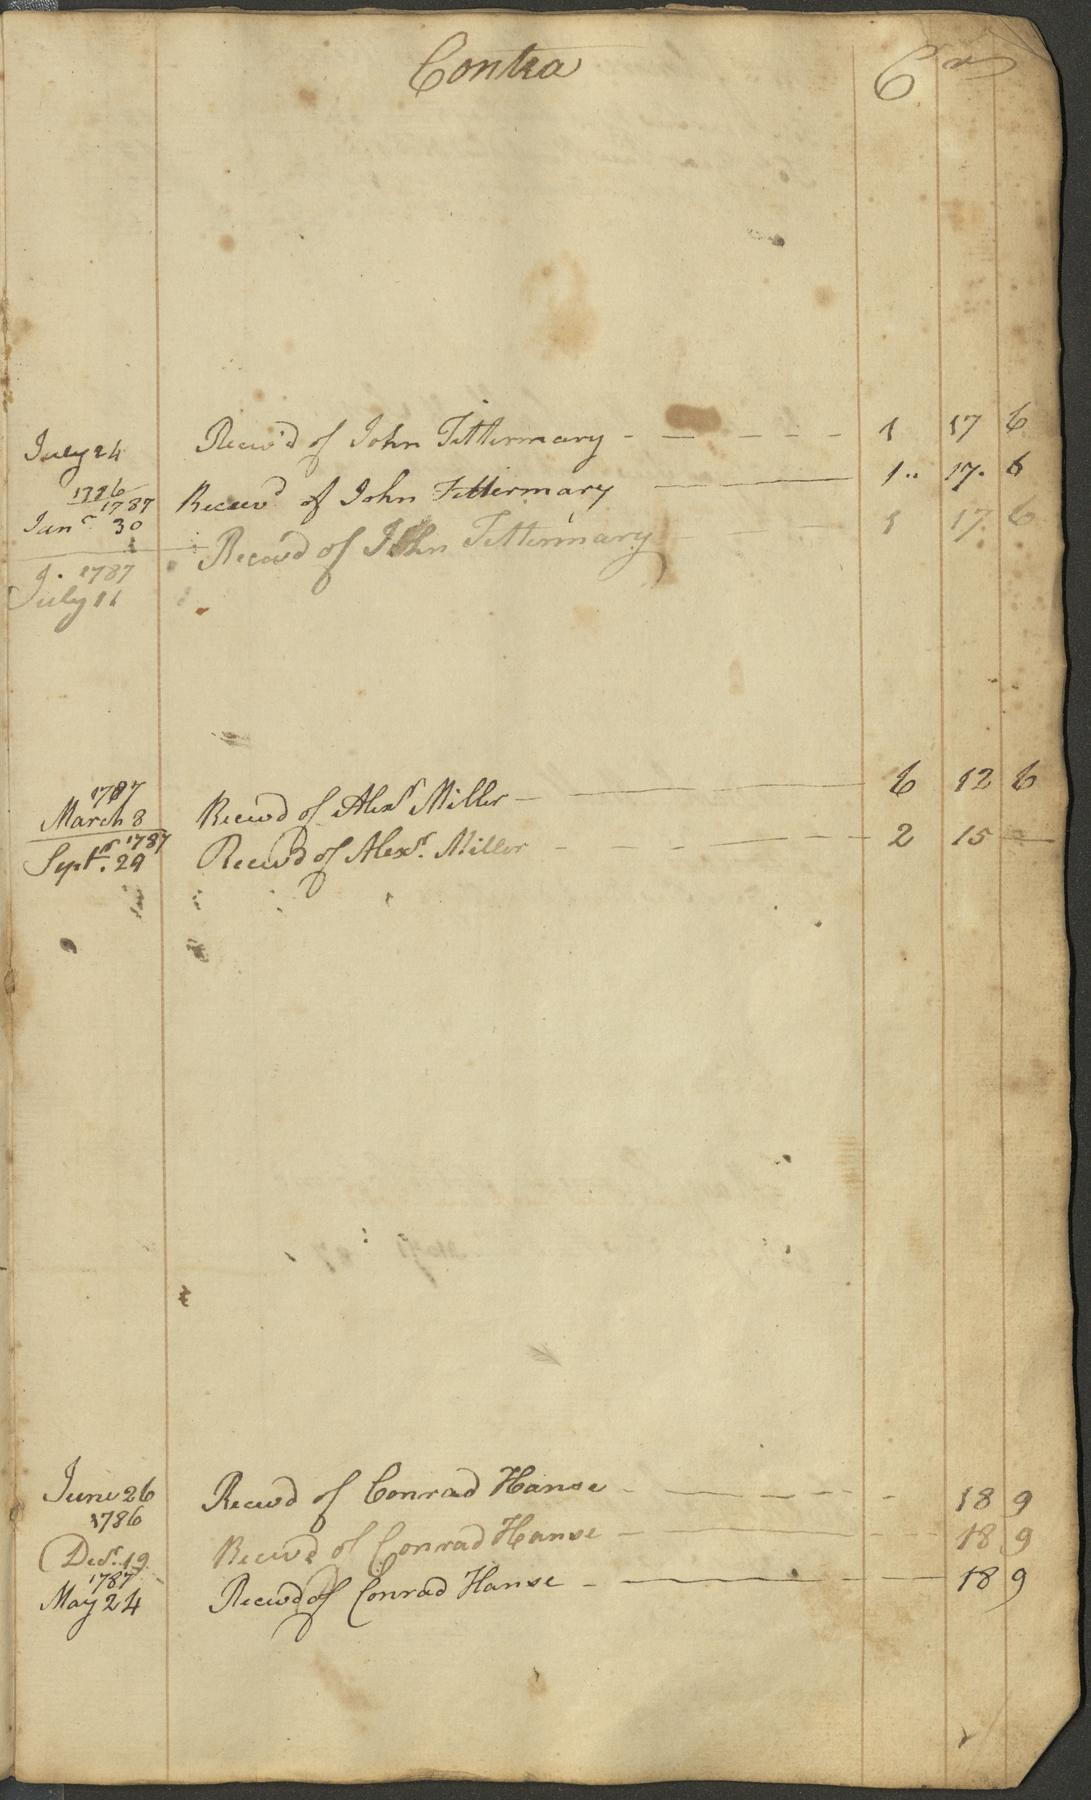 Contra Cr
July 24 Recev'd of John Tittermary - - - - - - 1 17 6
1786
1787
Janr 30 Receivd of John Tittermary 1.. 17. 6
1787
July 11 Recevd of John Tittermary 1 17. 6
1787
March 8 Recevd of Alexr Miller - 6 12 6
1787
Septr. 29 Recevd of Alexr. Miller - - - - 2 15 -
June 26 Recevd of Conrad Hanse - - - - - 18 9
1786
Decr. 19 Recevd of Conrad Hanse - 18 9
1787
May 24 Recevd of Conrad Hanse - 18 9